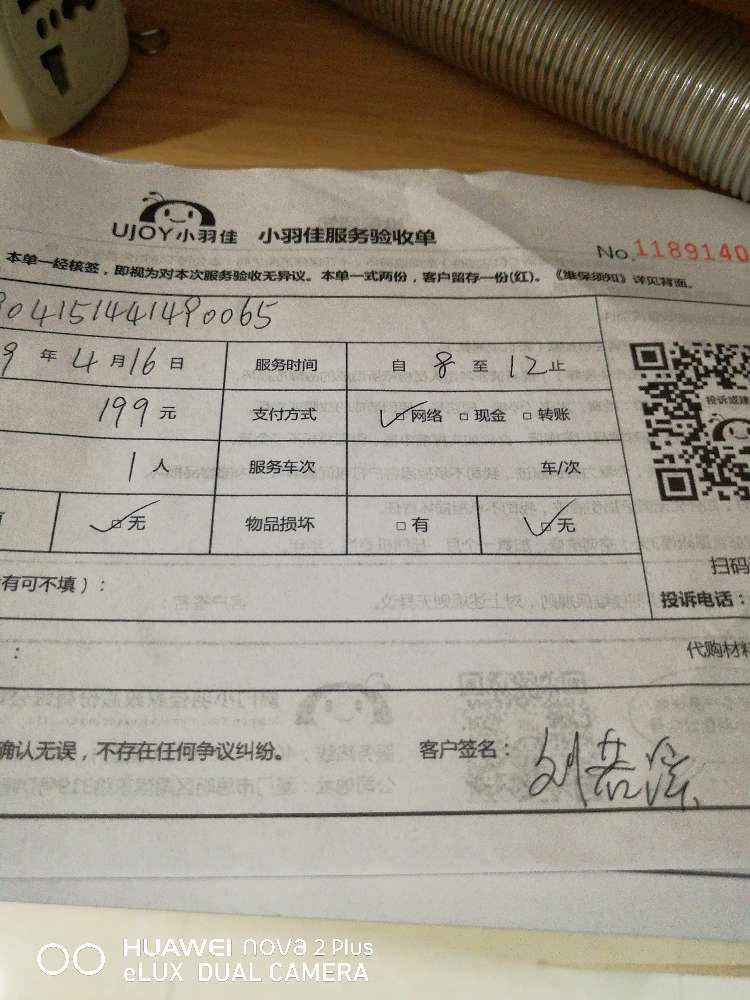 UJOY小羽佳 小羽佳服务验收单
No.1189140
本单一经核签，即视为对本次服务验收无异议。本单一式两份，客户留存一份(红)。《维保须知》详见背面。
904151441490065
9 年 4 月 16 日 服务时间 自 8 至 12 止
199 元 支付方式 □网络 □现金 □转账
投诉或建
1 人 服务车次 车/次
□无 物品损坏 □有 □无
扫码
有可不填）：
投诉电话：
：
代购材料
确认无误，不存在任何争议纠纷。 客户签名：
HUAWEI nova 2 Plus
eLUX DUAL CAMERA